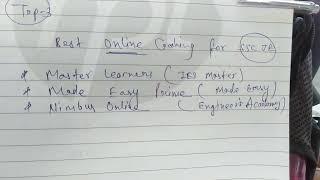 Top-3
Best Online Coaching for SSC JE
* Master Learners (IES Master)
* Made Easy Prime (Made Easy)
* Nimbus Online (Engineer's Academy)